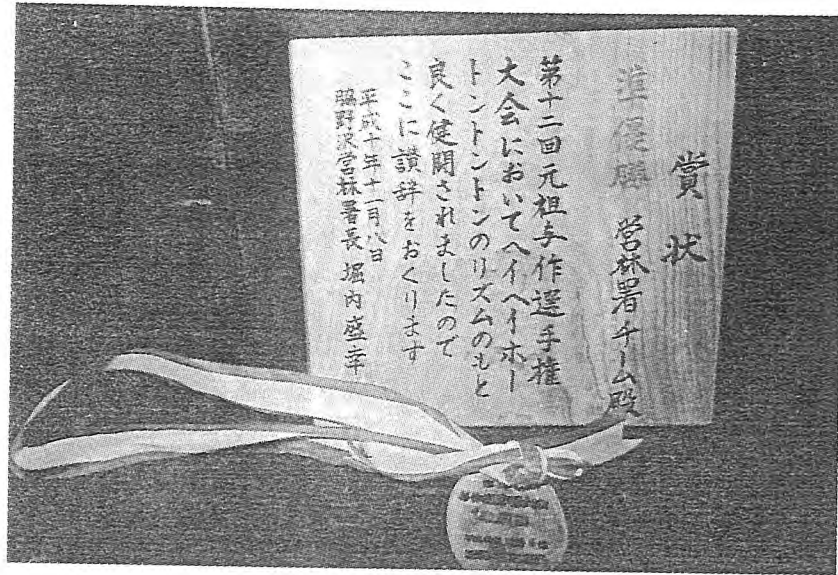 賞状
準優勝 営林署チーム殿
第十二回元祖与作選手権
大会においてヘイヘイホー
トントントンのリズムのもと
良く健闘されましたので
ここに讃辞をおくります
平成十年十一月八日
脇野沢営林署長 堀内盛幸